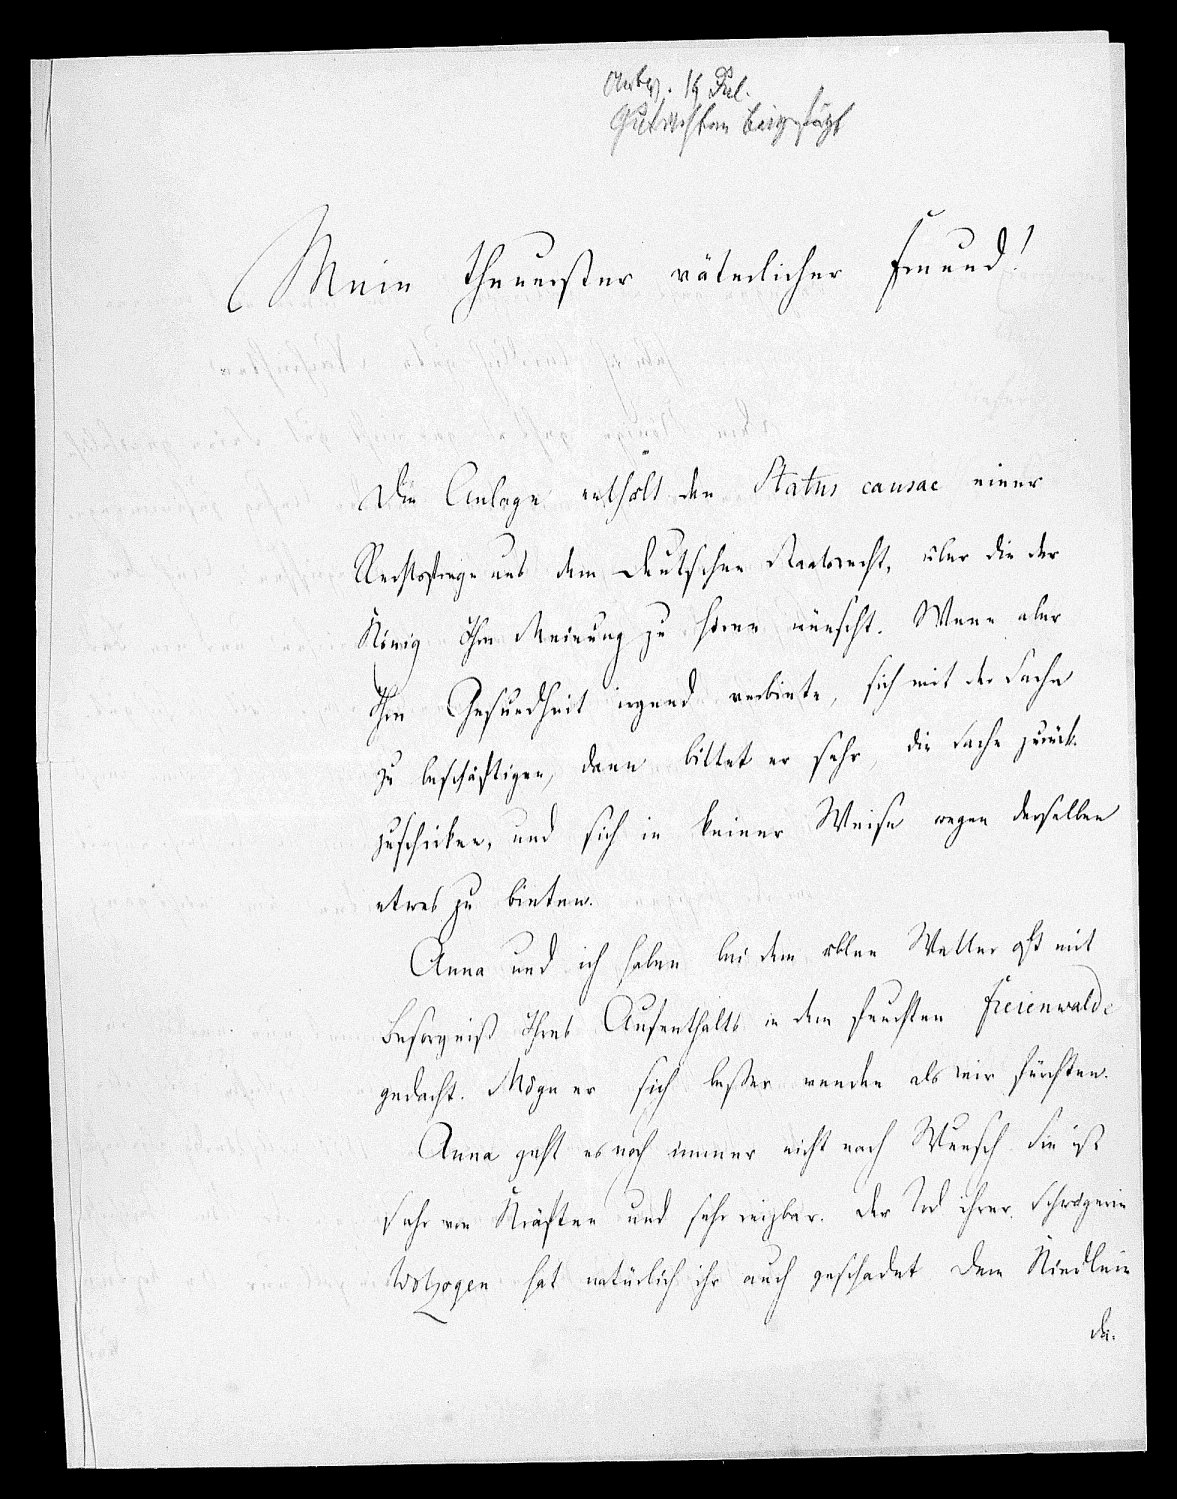 Antw. 14 Jul.
Gutachten beigefügt
Mein theuerster väterlicher Freund!
Die Anlage enthält den Status causae einer
Rechtsfrage aus dem deutschen Staatsrecht, über die der
König Ihre Meinung zu hören wünscht. Wenn aber
Ihre Gesundheit irgend verbiete, sich mit der Sache
zu beschäftigen, dann bittet er sehr, die Sache zurück-
zuschicken, und sich in keiner Weise wegen derselben
etwas zu bieten.
Anna und ich haben bei dem üblen Wetter oft mit
Besorgniß Ihres Aufenthalts in dem feuchten Freienwalde
gedacht. Möge er sich besser wenden als wir fürchten.
Anna geht es noch immer nicht nach Wunsch. Sie ist
sehr von Kräften und sehr reizbar. Der Tod ihrer Schwägerin
Wolzogen hat natürlich ihr auch geschadet. Dem Kindlein